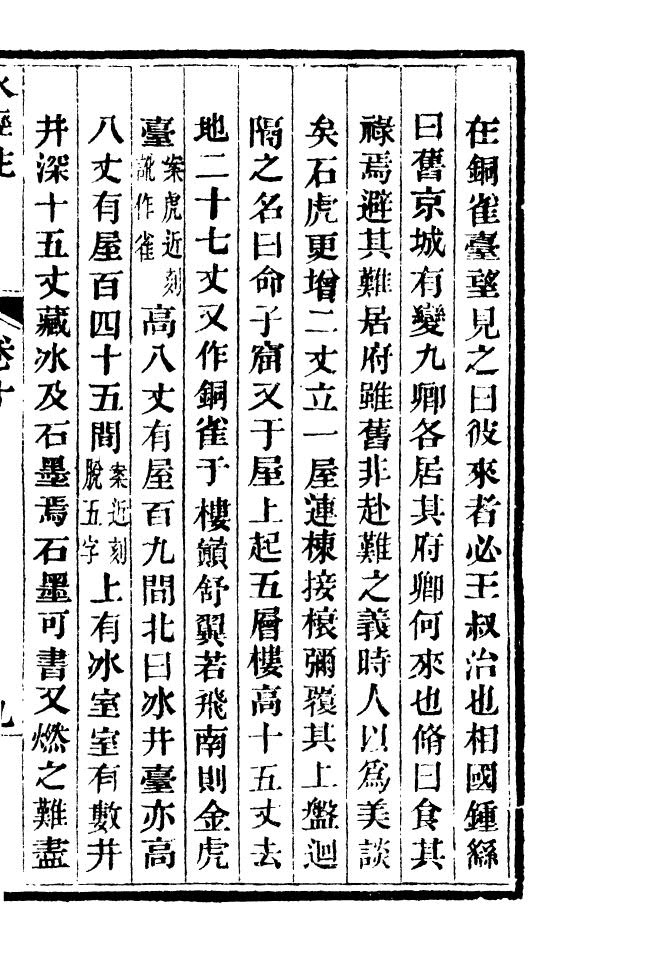 在銅雀臺望見之曰彼來者必王叔治也相國鍾繇
曰舊京城有變九卿各居其府卿何來也脩曰食其
祿焉避其難居府雖舊非赴難之義時人以為美談
矣石虎更增二丈立一屋連棟接榱彌覆其上盤迴
隔之名曰命子窟又于屋上起五層樓高十五丈去
地二十七丈又作銅雀于樓巔舒翼若飛南則金虎
臺案虎近刻訛作雀高八丈有屋百九間北曰冰井臺亦高
八丈有屋百四十五間案近刻脫五字上有冰室室有數井
井深十五丈藏冰及石墨焉石墨可書又燃之難盡
水經注 卷十 九